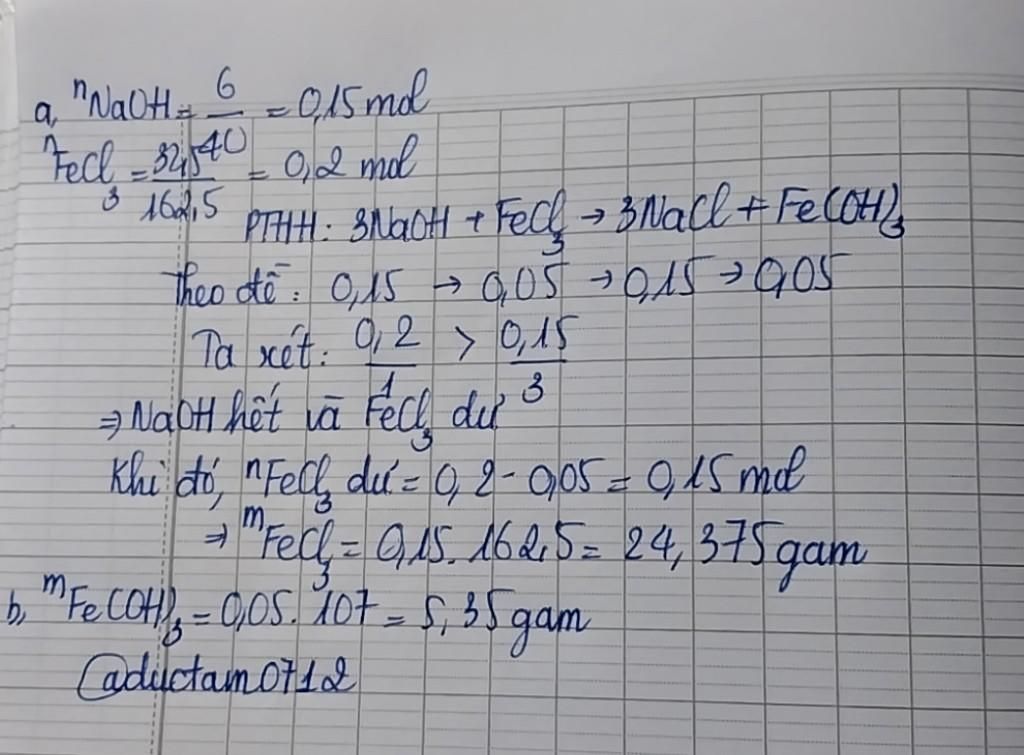 a, nNaOH = 6/40 = 0,15 mol
nFeCl3 = 32,5/162,5 = 0,2 mol
PTHH: 3NaOH + FeCl3 → 3NaCl + Fe(OH)3
Theo đề: 0,15 → 0,05 → 0,15 → 0,05
Ta xét: 0,2/1 > 0,15/3
⇒ NaOH hết và FeCl3 dư
Khi đó, nFeCl3 dư = 0,2 - 0,05 = 0,15 mol
⇒ mFeCl3 = 0,15. 162,5 = 24,375 gam
b, mFe(OH)3 = 0,05. 107 = 5,35 gam
@ductam0712